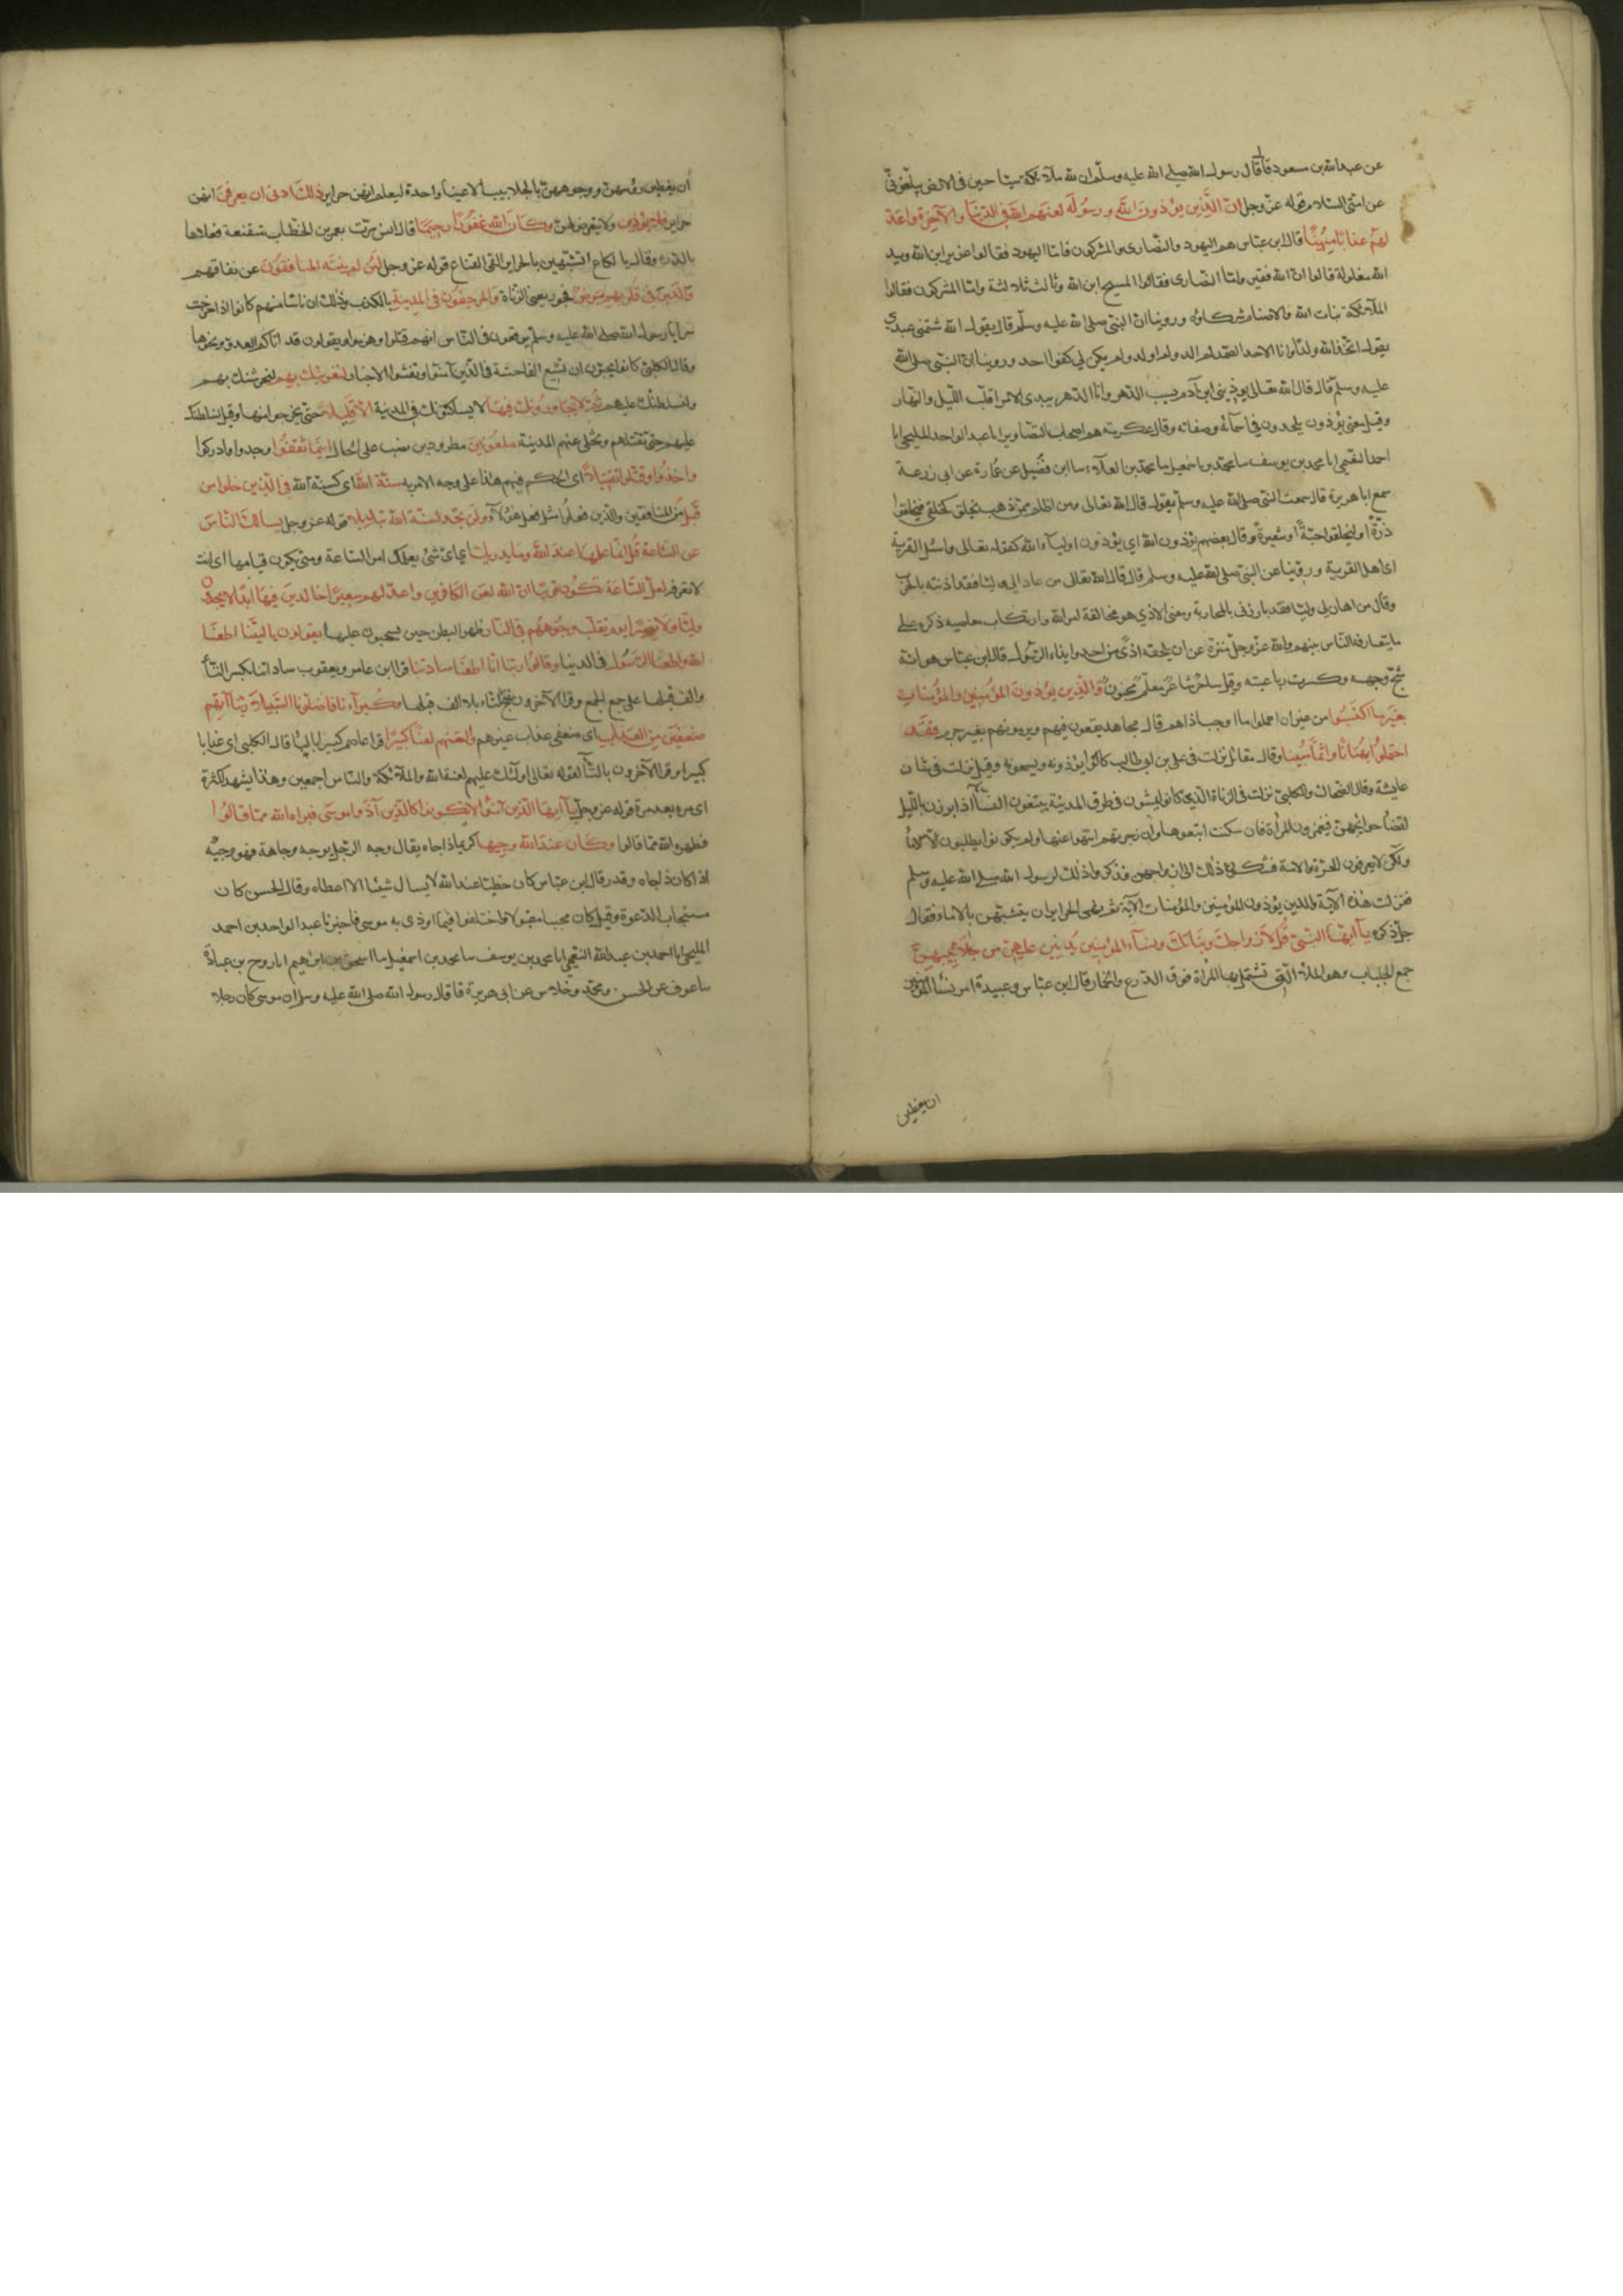 عن عبدالله بن مسعود قال قال رسول الله صلى الله عليه وسلم ان لله ملآئكة سياحين فى الارض يبلغونى
عن امتى السلام قوله عز وجل ان الذين يؤذون الله ورسوله لعنهم الله فى الدنيا والآخرة واعد
لهم عذابا مهينا قال ابن عباس هم اليهود والنصارى والمشركون فاما اليهود فقالوا عزير ابن الله ويد
الله مغلولة قالوا ان الله فقير واما النصارى فقالوا المسيح ابن الله وثالث ثلاثة واما المشركون فقالوا
الملآئكة بنات الله والاصنام شركاؤه وروينا ان النبى صلى الله عليه وسلم قال يقول الله شتمنى عبدى
يقول اتخذ الله ولدا وانا الاحد الصمد لم الد ولم اولد ولم يكن لى كفوا احد وروينا ان النبى صلى الله
عليه وسلم قال قال الله تعالى يوذينى ابن آدم يسب الدهر وانا الدهر بيدى الامر اقلب الليل والنهار
وقيل معنى يؤذون يلحدون فى اسمآئه وصفاته وقال عكرمة هم اصحاب التصاوير انا عبد الواحد المليحى انا
احمد النعيمى انا محمد بن يوسف سا محمد بن اسمعيل سا محمد بن العلآء سا ابن فضيل عن عمارة عن ابى زرعة
سمع ابا هريرة قال سمعت النبى صلى الله عليه وسلم يقول قال الله تعالى ومن اظلم ممن ذهب يخلق كخلقى فليخلقوا
ذرة او ليخلقوا حبة او شعيرة وقال بعضهم يؤذون الله اى يؤذون اوليآء الله كقوله تعالى واسئل القرية
اى اهل القرية وروينا عن النبى صلى الله عليه وسلم قال قال الله تعالى من عادا لى وليا فقد اذنته بالحرب
وقال من اهان لى وليا فقد بارزنى بالمحاربة ومعنى الاذى هو مخالفة امر الله وارتكاب معاصيه ذكره على
ما يتعارفه الناس بينهم والله عز وجل منزه عن ان يلحقه اذى من احد وايذاء الرسول قال ابن عباس هو انه
شج وجهه وكسرت رباعيته وقيل ساحر شاعر معلم مجنون والذين يؤذون المؤمنين والمؤمنات
بغير ما اكتسبوا من غير ان عملوا ما اوجب اذاهم قال مجاهد يقعون فيهم ويرمونهم بغير جرم فقد
احتملوا بهتانا واثما مبينا وقال مقاتل نزلت فى على بن ابى طالب كانوا يؤذونه ويسمعونه وقيل نزلت فى شان
عايشة وقال الضحاك والكلبى نزلت فى الزناة الذين كانوا يمشون فى طرق المدينة يتبعون النسآء اذا برزن بالليل
لقضآء حوائجهن فيغمزون المرأة فان سكتت اتبعوها وان زجرتهم انتهوا عنها ولم يكونوا يطلبون الا الامآء
ولكن لا يعرفون الحرة من الامة فشكوا ذلك الى ازواجهن فذكروا ذلك لرسول الله صلى الله عليه وسلم
فنزلت هذه الآية والذين يؤذون المؤمنين والمؤمنات الآية ثم نهى الحراير ان يتشبهن بالامآء فقال
جل ذكره يآ ايها النبى قل لازواجك وبناتك ونسآء المؤمنين يدنين عليهن من جلابيبهن
جمع الجلباب وهو الملآة التى تشتمل بها المرأة فوق الدرع والخمار قال ابن عباس وعبيدة امر نسآء المؤمنين
ان يغطين
ان يغطين رؤسهن ووجوههن بالجلابيب الا عينا واحدة ليعلم انهن حراير ذلك ادنى ان يعرفن انهن
حراير فلا يؤذين ولا يتعرض لهن وكان الله غفورا رحيما قال انس مرت بعمر بن الخطاب متقنعة فعلاها
بالدرة وقال يا لكاع اتتشبهين بالحراير القى القناع قوله عز وجل لئن لم ينته المنافقون عن نفاقهم
والذين فى قلوبهم مرض فجور يعنى الزناة والمرجفون فى المدينة بالكذب وذلك ان ناسا منهم كانوا اذا خرجت
سرايا رسول الله صلى الله عليه وسلم يوقعون فى الناس انهم قتلوا وهزموا ويقولون قد اتاكم العدو ونحوها
وقال الكلبى كانوا يحبون ان تشيع الفاحشة فى الذين آمنوا وتفشوا الاخبار لنغرينك بهم لنحرشنك بهم
ولنسلطنك عليهم ثم لا يجاورونك فيها لا يساكنونك فى المدينة الا قليلا حتى يخرجوا منها وقيل لنسلطنك
عليهم حتى تقتلهم وتخلى عنهم المدينة ملعونين مطرودين نصب على الحال اينما ثقفوا وجدوا وادركوا
واخذوا وقتلوا تقتيلا اى الحكم فيهم هذا على وجه الامر به سنة الله اى كسنة الله فى الذين خلوا من
قبل من المنافقين والذين فعلوا مثل فعل هؤلآء ولن تجد لسنة الله تبديلا قوله عز وجل يسالك الناس
عن الساعة قل انما علمها عند الله وما يدريك اى اى شئ يعلمك امر الساعة ومتى يكون قيامها اى انت
لا تعرفه لعل الساعة تكون قريبا ان الله لعن الكافرين واعد لهم سعيرا خالدين فيها ابدا لا يجدون
وليا ولا نصيرا يوم تقلب وجوههم فى النار ظهرا لبطن حين يسحبون عليها يقولون يا ليتنا اطعنا
الله واطعنا الرسول فى الدنيا وقالوا ربنا انا اطعنا سادتنا قرا ابن عامر ويعقوب ساداتنا بكسر التآء
والف قبلها على جمع الجمع وقرا الآخرون بفتح التاء بلا الف قبلها وكبرآءنا فاضلونا السبيلا ربنا آتهم
ضعفين من العذاب اى ضعفى عذاب غيرهم والعنهم لعنا كبيرا قرا عاصم كبيرا بالبآء قال الكلبى اى عذابا
كبيرا وقرا الآخرون بالثآء لقوله تعالى اولئك عليهم لعنة الله والملآئكة والناس اجمعين وهذا يشهد لكثرة
اى مرة بعد مرة قوله عز وجل يآ ايها الذين آمنوا لا تكونوا كالذين آذوا موسى فبراه الله مما قالوا
فطهره الله مما قالوا وكان عند الله وجيها كريما ذا جاه يقال وجه الرجل يوجه وجاهة فهو وجيه
اذا كان ذا جاه وقدر قال ابن عباس كان حظيا عند الله لا يسال شيئا الا اعطاه وقال الحسن كان
مستجاب الدعوة وقيل كان محببا مقبولا واختلفوا فيما اوذى به موسى فاخبرنا عبد الواحد بن احمد
المليحى انا احمد بن عبدالله النعيمى انا محمد بن يوسف سا محمد بن اسمعيل سا اسحق بن ابرهيم انا روح بن عبادة
سا عوف عن الحسن ومحمد وخلاس عن ابى هريرة قال قال رسول الله صلى الله عليه وسلم ان موسى كان رجلا